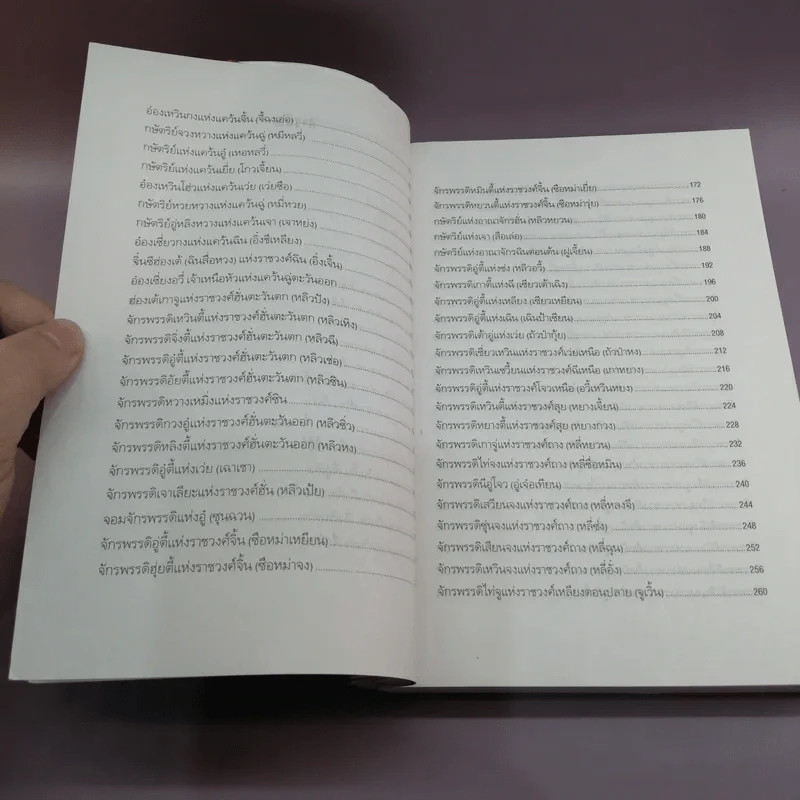 อ๋องเหวินกงแห่งแคว้นจิ้น (จี้ฉงเอ่อ)
กษัตริย์จวงหวางแห่งแคว้นฉู่ (หมี่หลวี่)
กษัตริย์แห่งแคว้นอู๋ (เหอหลวี่)
กษัตริย์แห่งแคว้นเยี่ย (โกวเจี้ยน)
อ๋องเหวินโฮ่วแห่งแคว้นเว่ย (เว่ยซือ)
กษัตริย์หวยหวางแห่งแคว้นฉู่ (หมี่หวย)
กษัตริย์อู่หลิงหวางแห่งแคว้นเจา (เจาหย่ง)
อ๋องเซี่ยวกงแห่งแคว้นฉิน (อิ๋งชีเหลียง)
จิ๋นซีฮ่องเต้ (ฉินสื่อหวง) แห่งราชวงศ์ฉิน (อิ๋งเจิ้น)
อ๋องเซี่ยงอวี่ เจ้าเหนือหัวแห่งแคว้นฉู่ตะวันออก
ฮ่องเต้เกาจูแห่งราชวงศ์ฮั่นตะวันตก (หลิวปัง)
จักรพรรดิเหวินตี้แห่งราชวงศ์ฮั่นตะวันตก (หลิวเหิง)
จักรพรรดิจิ่งตี้แห่งราชวงศ์ฮั่นตะวันตก (หลิวฉี)
จักรพรรดิอู่ตี้แห่งราชวงศ์ฮั่นตะวันตก (หลิวเช่อ)
จักรพรรดิอัยตี้แห่งราชวงศ์ฮั่นตะวันตก (หลิวซิน)
จักรพรรดิหวางเหมิ่งแห่งราชวงศ์ซิน
จักรพรรดิกวงอู่แห่งราชวงศ์ฮั่นตะวันออก (หลิวซิ่ว)
จักรพรรดิหลิงตี้แห่งราชวงศ์ฮั่นตะวันออก (หลิวหง)
จักรพรรดิอู่ตี้แห่งเว่ย (เฉาเชา)
จักรพรรดิเจาเลียะแห่งราชวงศ์ฮั่น (หลิวเป้ย)
จอมจักรพรรดิแห่งอู๋ (ซุนฉวน)
จักรพรรดิอู่ตี้แห่งราชวงศ์จิ้น (ซือหม่าเหยียน)
จักรพรรดิฮุ่ยตี้แห่งราชวงศ์จิ้น (ซือหม่าจง)
จักรพรรดิหมินตี้แห่งราชวงศ์จิ้น (ซือหม่าเยี่ย) 172
จักรพรรดิหยวนตี้แห่งราชวงศ์จิ้น (ซือหม่ารุ่ย) 176
กษัตริย์แห่งอาณาจักรฮั่น (หลิวหยวน) 180
กษัตริย์แห่งเจา (สือเล่อ) 184
กษัตริย์แห่งอาณาจักรฉินตอนต้น (ฝูเจี้ยน) 188
จักรพรรดิอู่ตี้แห่งซ่ง (หลิวอวี้) 192
จักรพรรดิเกาตี้แห่งฉี (เซียวเต้าเฉิง) 196
จักรพรรดิอู่ตี้แห่งเหลียง (เซียวเหยียน) 200
จักรพรรดิอู่ตี้แห่งเฉิน (เฉินป้าเซียน) 204
จักรพรรดิเต้าอู่แห่งเว่ย (ถัวป๋ากุ้ย) 208
จักรพรรดิเซี่ยวเหวินแห่งราชวงศ์เว่ยเหนือ (ถัวป๋าหง) 212
จักรพรรดิเหวินเซวี้ยนแห่งราชวงศ์ฉีเหนือ (เกาหยาง) 216
จักรพรรดิอู่ตี้แห่งราชวงศ์โจวเหนือ (อวี้เหวินหยง) 220
จักรพรรดิเหวินตี้แห่งราชวงศ์สุย (หยางเจี้ยน) 224
จักรพรรดิหยางตี้แห่งราชวงศ์สุย (หยางกวง) 228
จักรพรรดิเกาจู่แห่งราชวงศ์ถาง (หลี่หยวน) 232
จักรพรรดิไท่จงแห่งราชวงศ์ถาง (หลี่ซื่อหมิน) 236
จักรพรรดินีอู่โจว (อู่เจ๋อเทียน) 240
จักรพรรดิเสวียนจงแห่งราชวงศ์ถาง (หลี่หลงจี) 244
จักรพรรดิซุ่นจงแห่งราชวงศ์ถาง (หลี่ซ่ง) 248
จักรพรรดิเสียนจงแห่งราชวงศ์ถาง (หลี่ฉุน) 252
จักรพรรดิเหวินจงแห่งราชวงศ์ถาง (หลี่อั๋ง) 256
จักรพรรดิไท่จูแห่งราชวงศ์เหลียงตอนปลาย (จูเวิ้น) 260